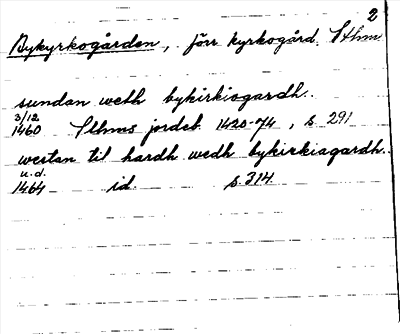 2
Bykyrkogården, förr kyrkogård. Sthm
sundan wedh bykirkiogardh..
3/12
1460 Sthms jordeb. 1420-74, s. 291
westan til hardh wedh bykirkiagardh..
u.d.
1464 id. s. 314